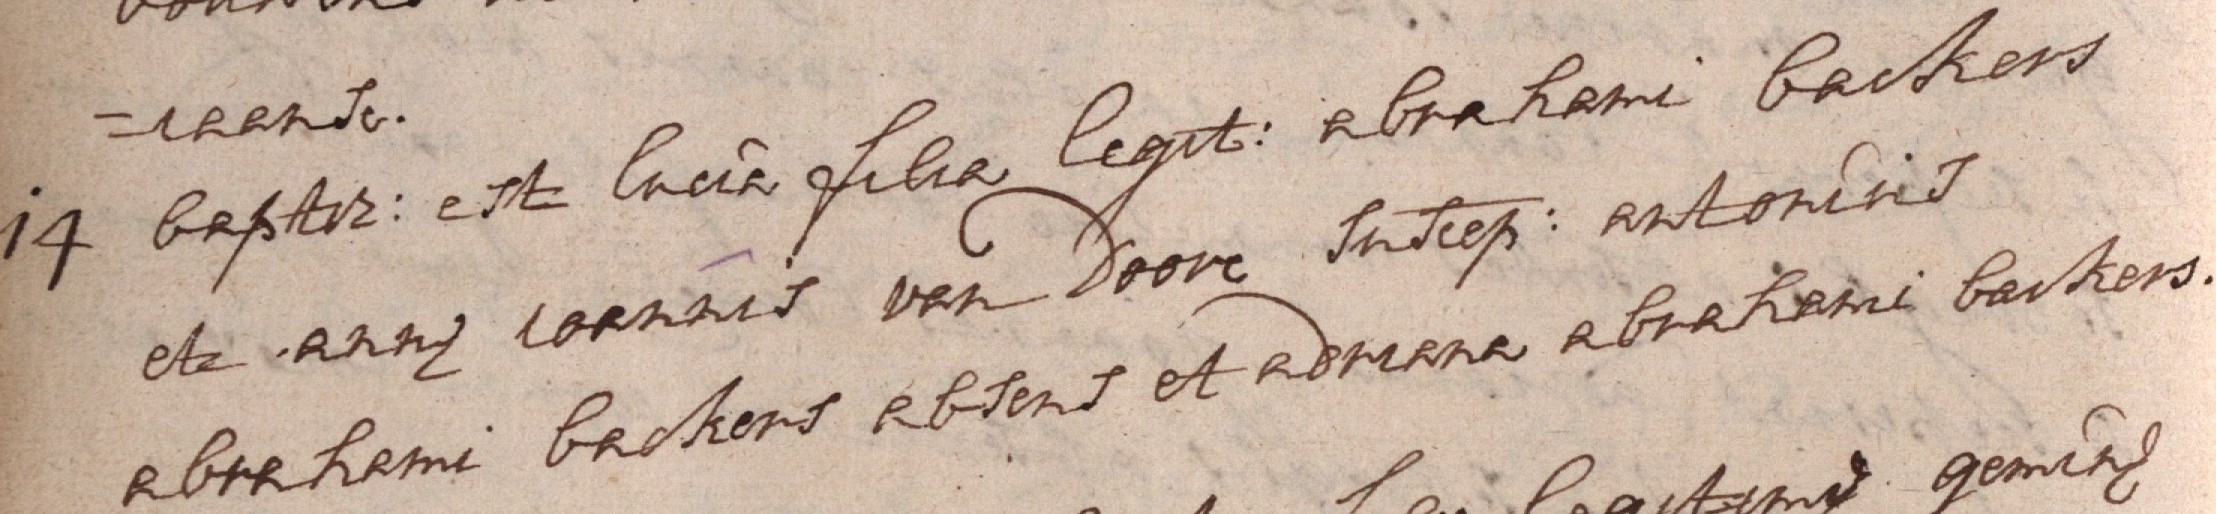 =iaanse.
14 baptiz: est lucia filia legit: abrahami backers
et annę ioannis van Doore suscep: antonius
abrahami backers absens et adriana abrahami backers.
geminę